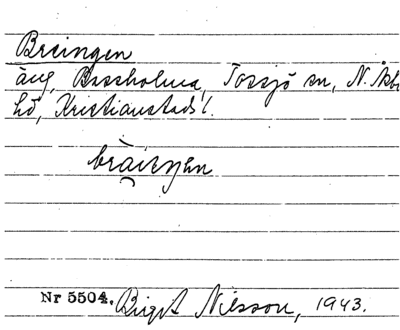 Breingen
äng, Bessholma, Tossjö sn, N. Åsbo
hd, Kristianstads l.
Nr 5504. Birgit Nilsson, 1943.